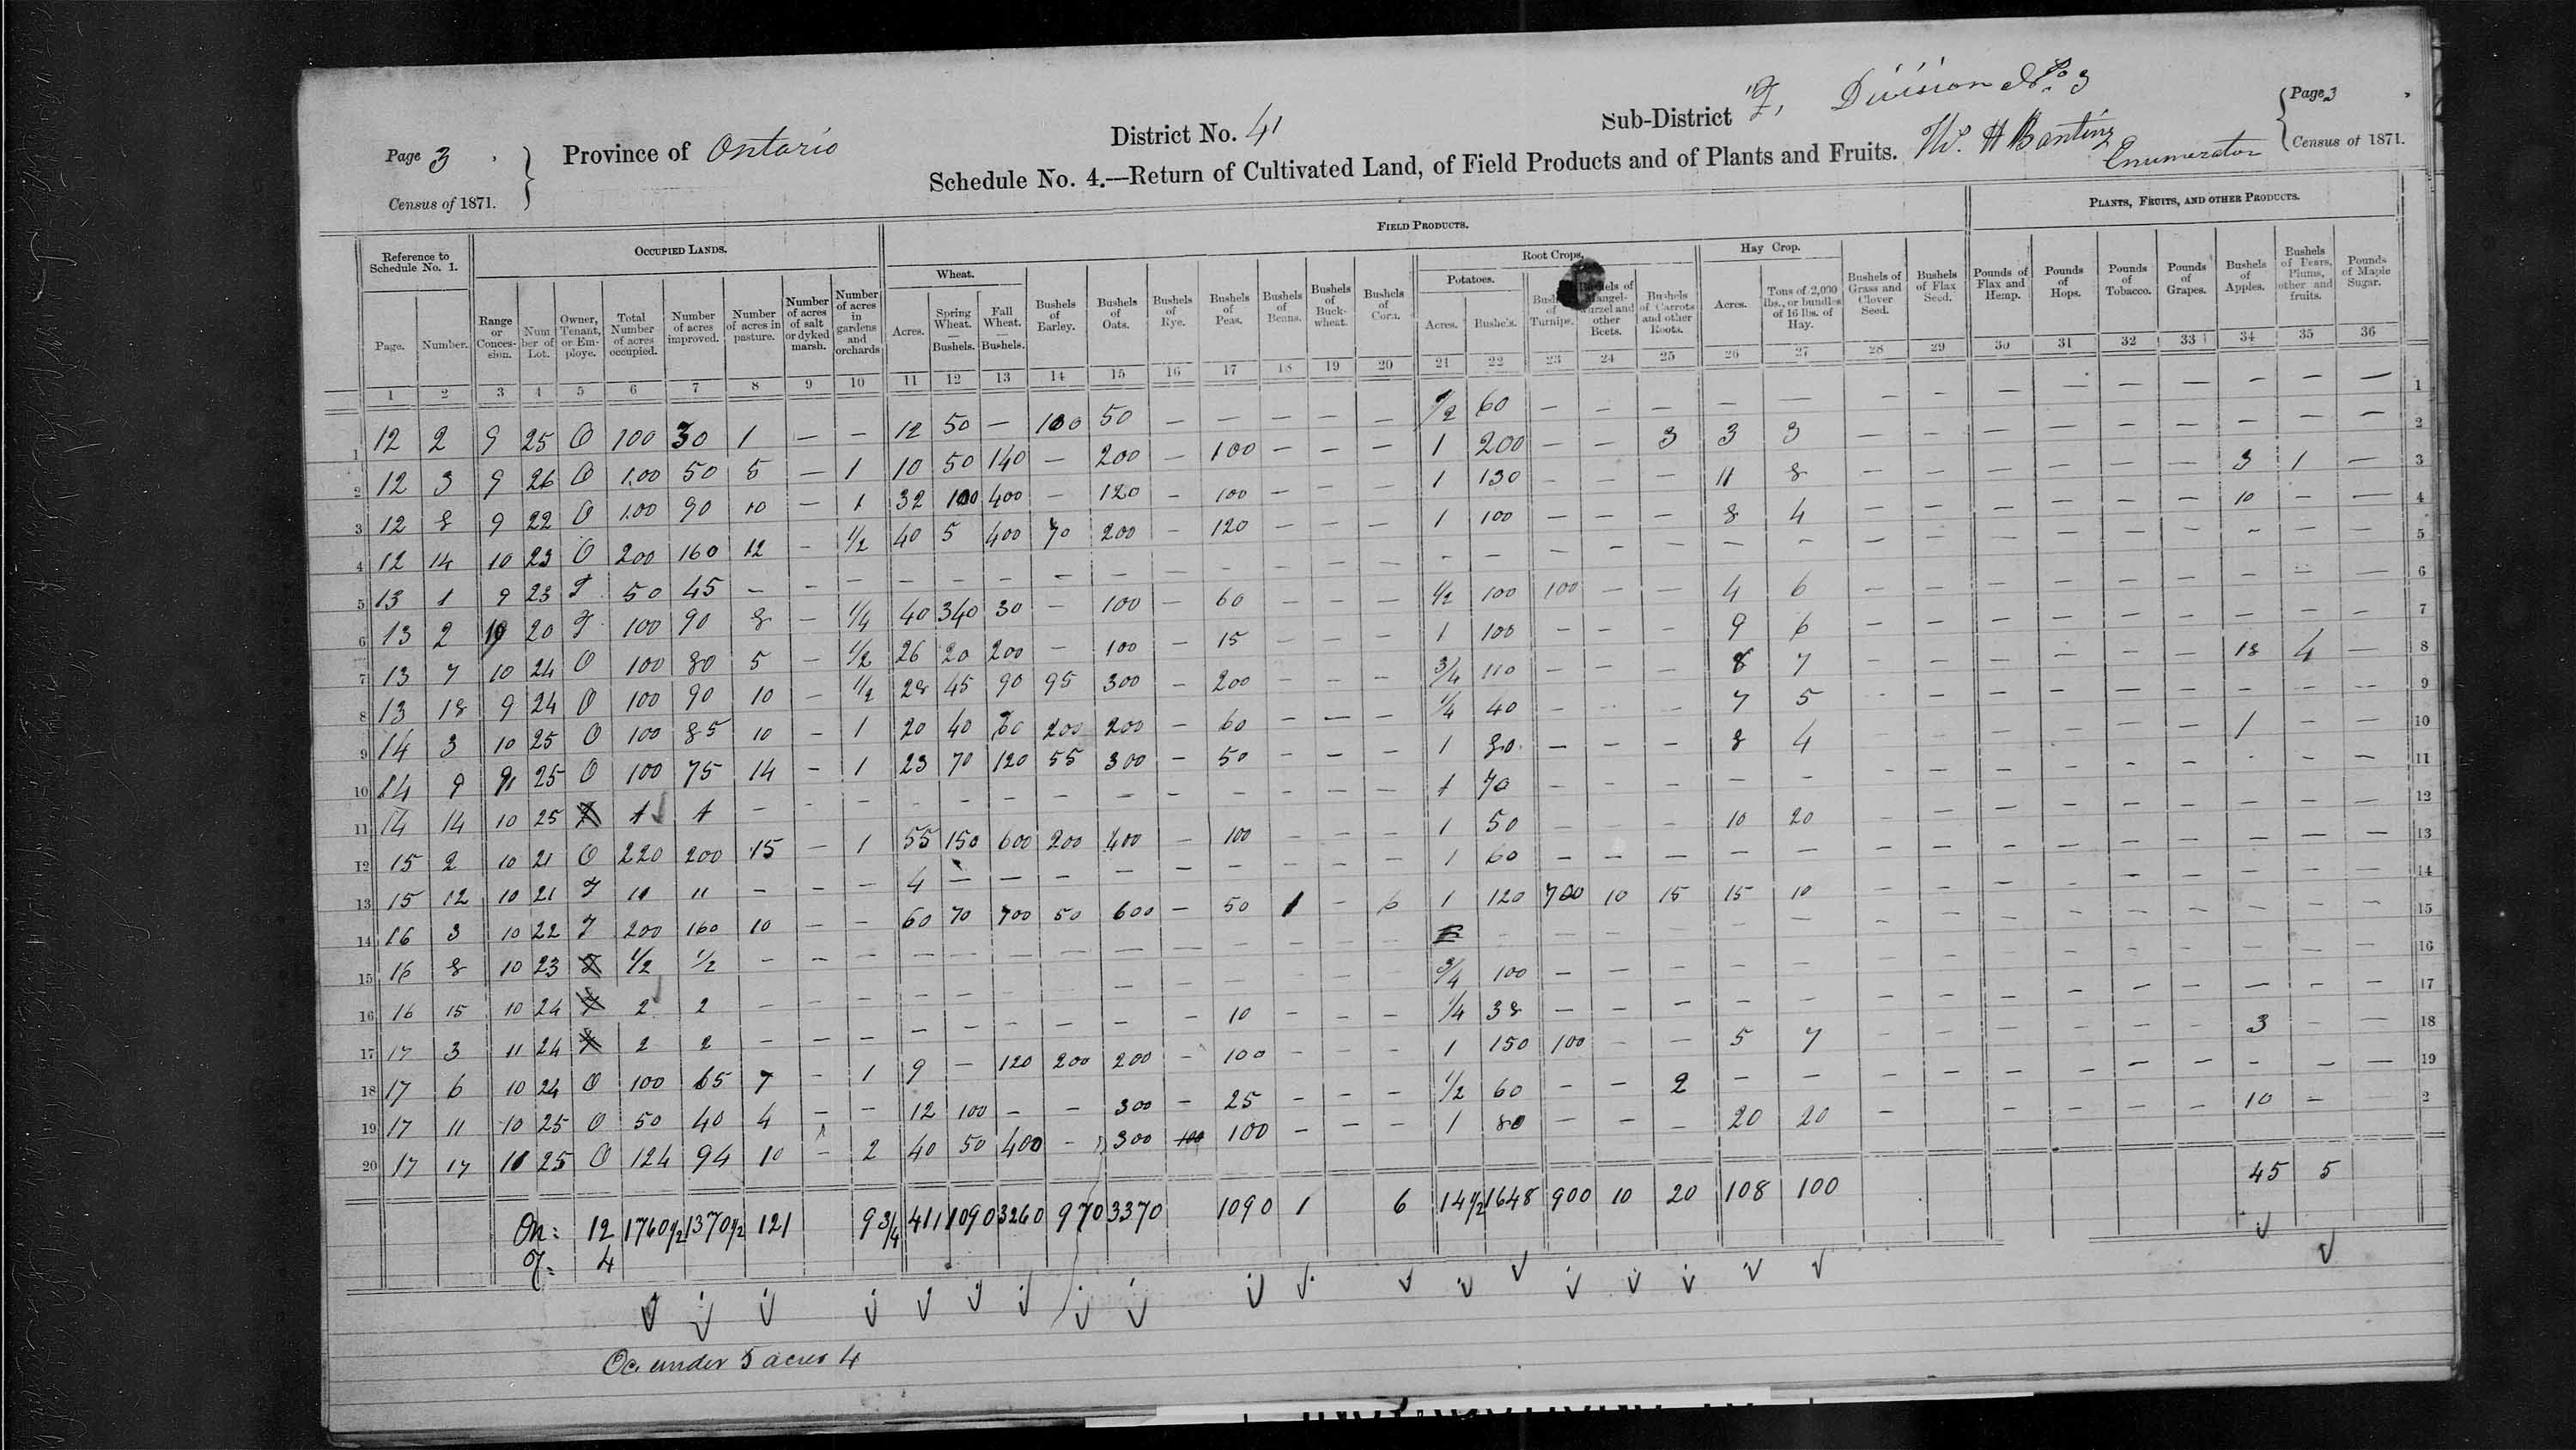 Page 3
Census of 1871.
Province of Ontario
District No. 41
Sub-District F, Division No. 3
Page 3
Census of 1871.
Schedule No. 4.—Return of Cultivated Land, of Field Products and of Plants and Fruits. W. H Banting Enumerator
Reference to Schedule No. 1. | OCCUPIED LANDS. | FIELD PRODUCTS. | PLANTS, FRUITS, AND OTHER PRODUCTS.
Wheat. | Root Crops. | Potatoes. | Hay Crop.
Page. | Number. | Range or Concession. | Number of Lot. | Owner, Tenant, or Employe. | Total Number of acres occupied. | Number of acres improved. | Number of acres in pasture. | Number of acres of salt or dyked marsh. | Number of acres in gardens and orchards | Acres. | Spring Wheat.—Bushels. | Fall Wheat.—Bushels. | Bushels of Barley. | Bushels of Oats. | Bushels of Rye. | Bushels of Peas. | Bushels of Beans. | Bushels of Buckwheat. | Bushels of Corn. | Acres. | Bushels. | Bushels of Turnips. | Bushels of Mangel-wurzel and other Beets. | Bushels of Carrots and other Roots. | Acres. | Tons of 2,000 lbs., or bundles of 16 lbs. of Hay. | Bushels of Grass and Clover Seed. | Bushels of Flax Seed. | Pounds of Flax and Hemp. | Pounds of Hops. | Pounds of Tobacco. | Pounds of Grapes. | Bushels of Apples. | Bushels of Pears, Plums, other and fruits. | Pounds of Maple Sugar.
1 2 3 4 5 6 7 8 9 10 11 12 13 14 15 16 17 18 19 20 21 22 23 24 25 26 27 28 29 30 31 32 33 34 35 36
1 12 2 9 25 O 100 30 1 — — 12 50 — 100 50 — — — — — 1/2 60 — — — — — — — — — — — — — — 1
2 12 3 9 26 O 100 50 5 — 1 10 50 140 — 200 — 100 — — — 1 200 — — 3 3 3 — — — — — — — — — 2
3 12 8 9 22 O 100 90 10 — 1 32 100 400 — 120 — 100 — — — 1 130 — — — 11 8 — — — — — — 3 1 — 3
4 12 14 10 23 O 200 160 12 — 1/2 40 5 400 70 200 — 120 — — — 1 100 — — — 8 4 — — — — — — 10 — — 4
5 13 1 9 23 T 50 45 — — — — — — — — — — — — — — — — — — — — — — — — — — — — — 5
6 13 2 10 20 T 100 90 8 — 1/4 40 340 30 — 100 — 60 — — — 1/2 100 100 — — 4 6 — — — — — — — — — 6
7 13 7 10 24 O 100 80 5 — 1/2 26 20 200 — 100 — 15 — — — 1 100 — — — 9 6 — — — — — — — — — 7
8 13 18 9 24 O 100 90 10 — 1/2 28 45 90 95 300 — 200 — — — 3/4 110 — — — 8 7 — — — — — — 18 4 — 8
9 14 3 10 25 O 100 85 10 — 1 20 40 60 200 200 — 60 — — — 1/4 40 — — — 7 5 — — — — — — — — — 9
10 14 9 9 25 O 100 75 14 — 1 23 70 120 55 300 — 50 — — — 1 80 — — — 8 4 — — — — — — 1 — — 10
11 14 14 10 25 T 1 1 — — — — — — — — — — — — — 1 70 — — — — — — — — — — — — — — 11
12 15 2 10 21 O 220 200 15 — 1 55 150 600 200 400 — 100 — — — 1 50 — — — 10 20 — — — — — — — — — 12
13 15 12 10 21 T 11 11 — — — 4 — — — — — — — — — 1 60 — — — — — — — — — — — — — — 13
14 16 3 10 22 T 200 160 10 — — 60 70 700 50 600 — 50 1 — 6 1 120 700 10 15 15 10 — — — — — — — — — 14
15 16 8 10 23 T 1/2 1/2 — — — — — — — — — — — — — — — — — — — — — — — — — — — — 15
16 16 15 10 24 T 2 2 — — — — — — — — — — — — — 3/4 100 — — — — — — — — — — — — — — 16
17 17 3 11 24 T 2 2 — — — — — — — — — 10 — — — 1/4 38 — — — — — — — — — — — — — — 17
18 17 6 10 24 O 100 65 7 — 1 9 — 120 200 200 — 100 — — — 1 150 100 — — 5 7 — — — — — — 3 — — 18
19 17 11 10 25 O 50 40 4 — — 12 100 — — 300 — 25 — — — 1/2 60 — — 2 — — — — — — — — — — — 19
20 17 17 11 25 O 124 94 10 — 2 40 50 400 — 300 100 100 — — — 1 80 — — — 20 20 — — — — — — 10 — — 2
On: 12 1760 1/2 1370 1/2 121 9 3/4 411 1090 3260 970 3370 1090 1 6 14 1/2 1648 900 10 20 108 100 45 5
T. 4
Oc. under 5 acres 4